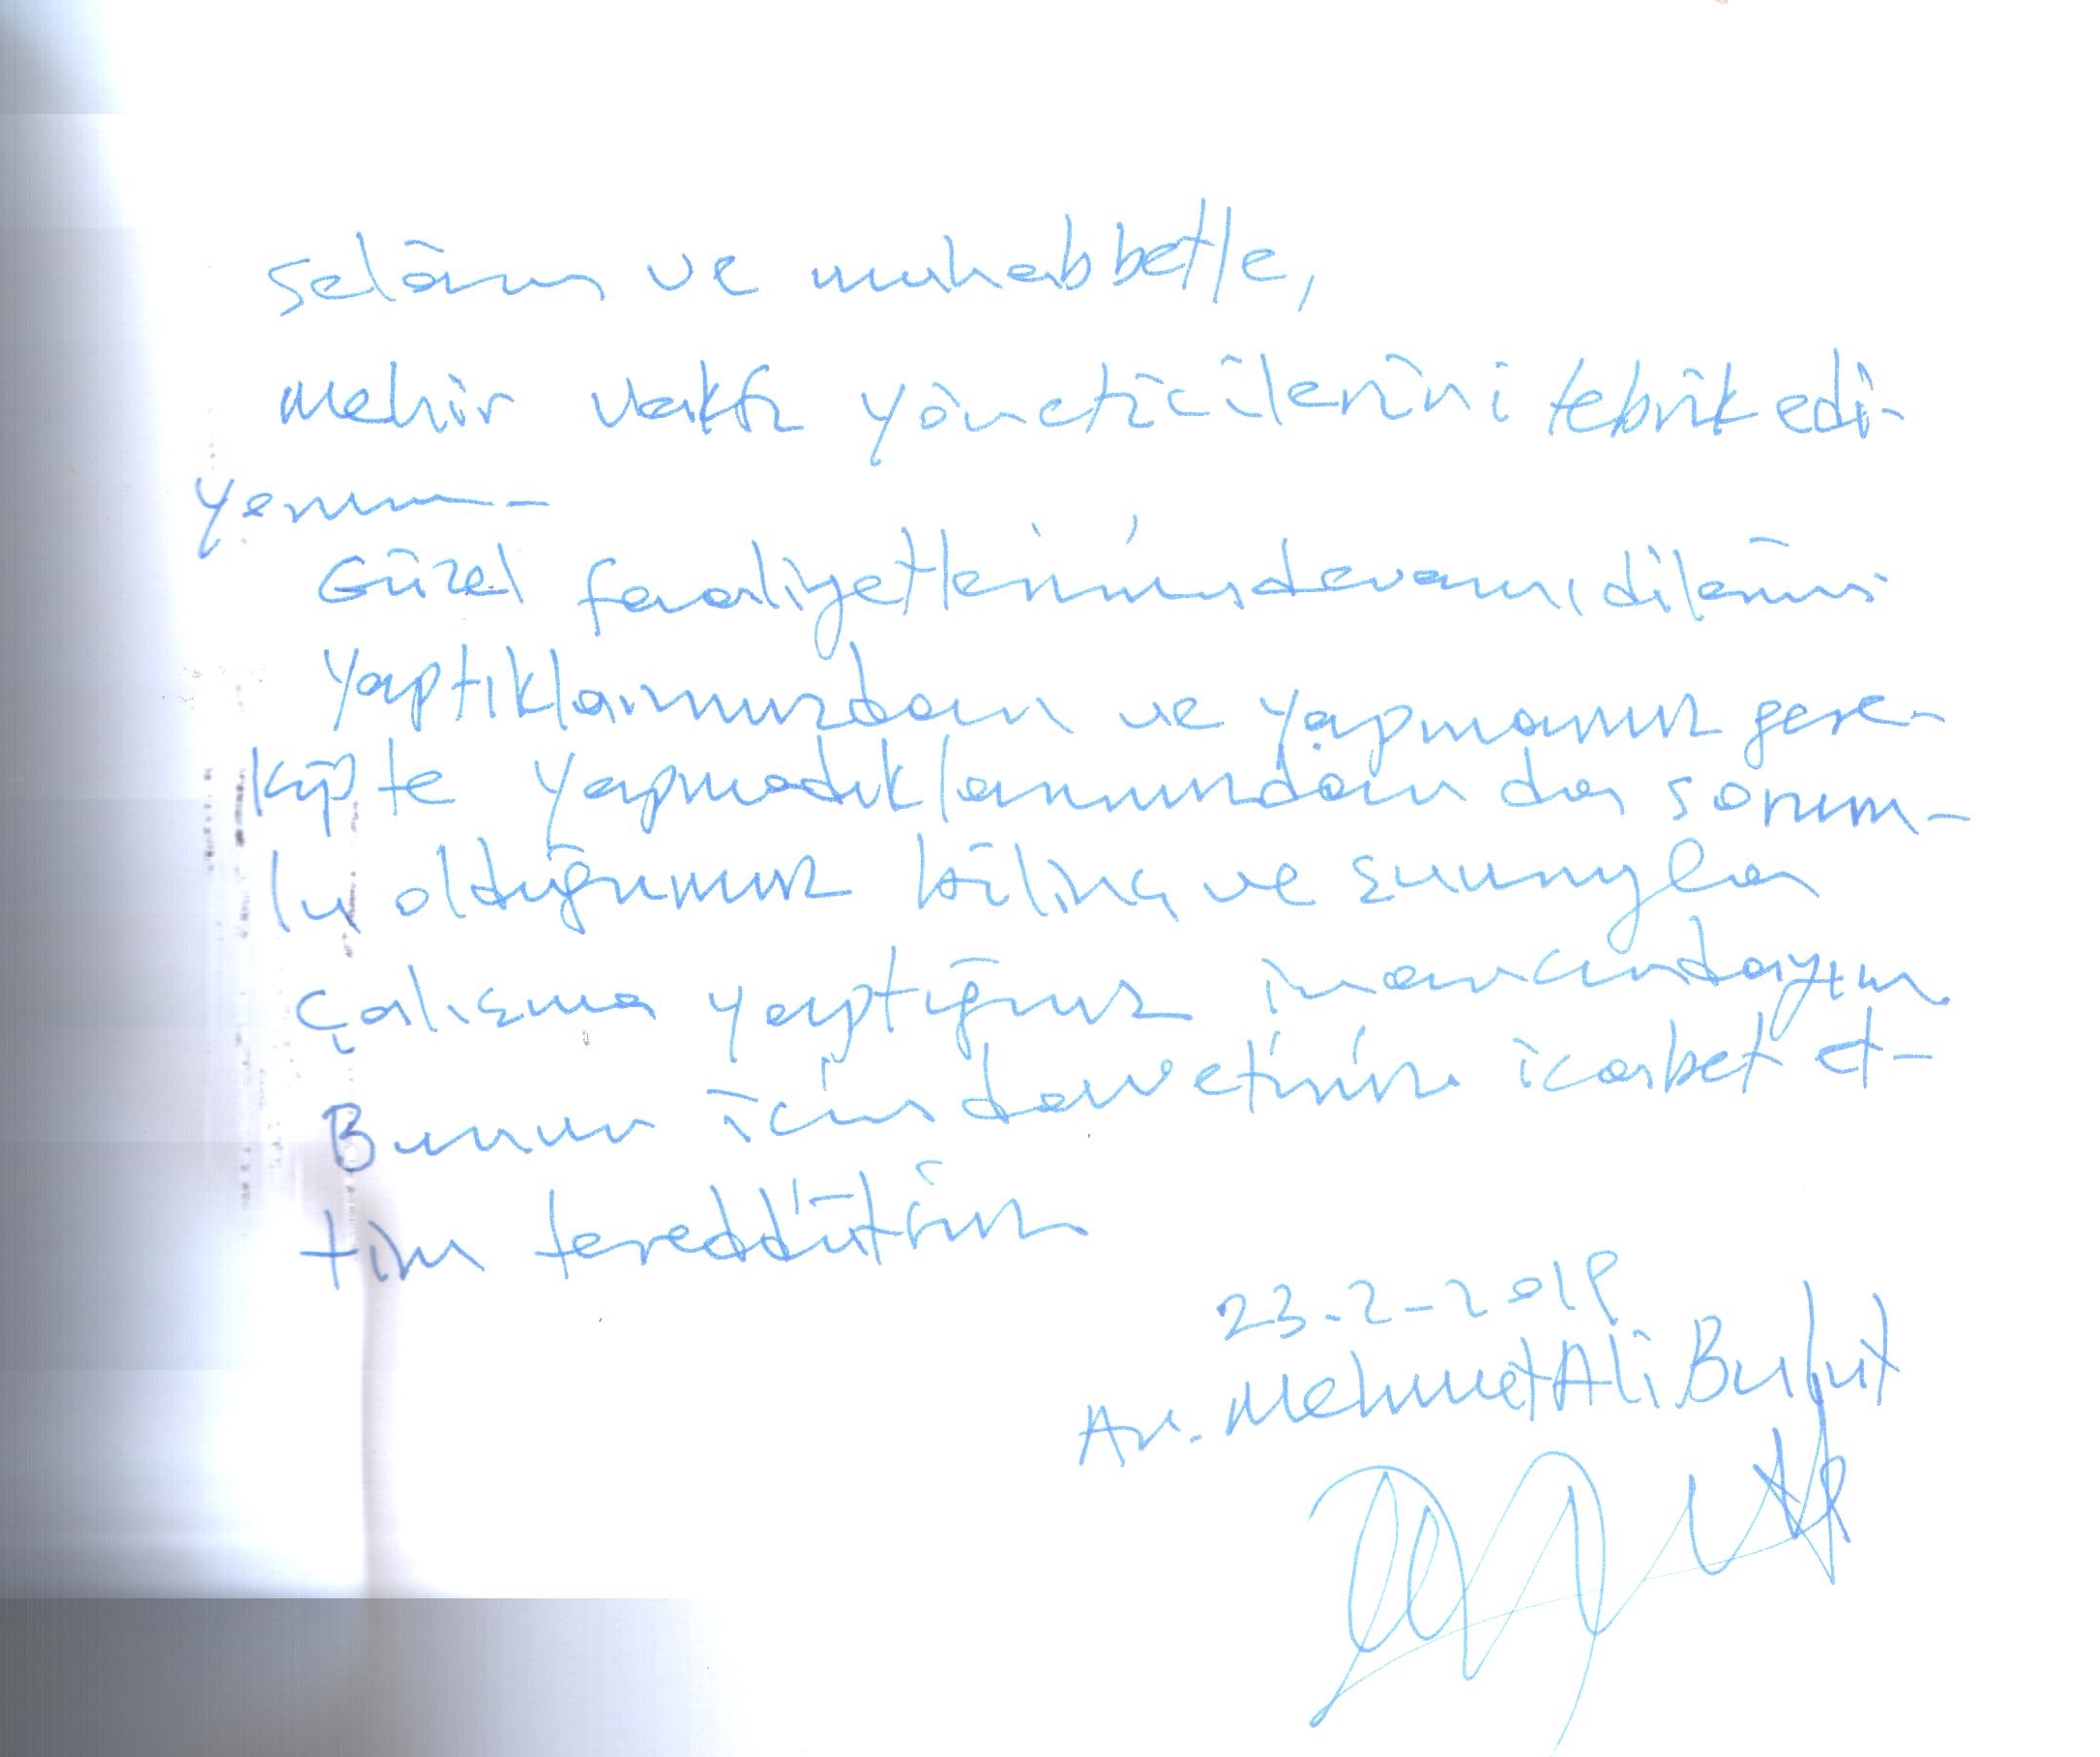 Selâm ve muhabbetle,
Mehir Vakfı yöneticilerini tebrik edi-
yorum-
Güzel faaliyetlerinin devamını dilerim
Yaptıklarımızdan ve yapmamız gere-
kipte yapmadıklarımızdan da sorum-
lu olduğumuz bilinç ve şuuruyla
çalışma yaptığınız inancındayım.
Bunun için davetinize icabet et-
tim tereddütsüz
23-2-2019
Av. Mehmet Ali Bulut